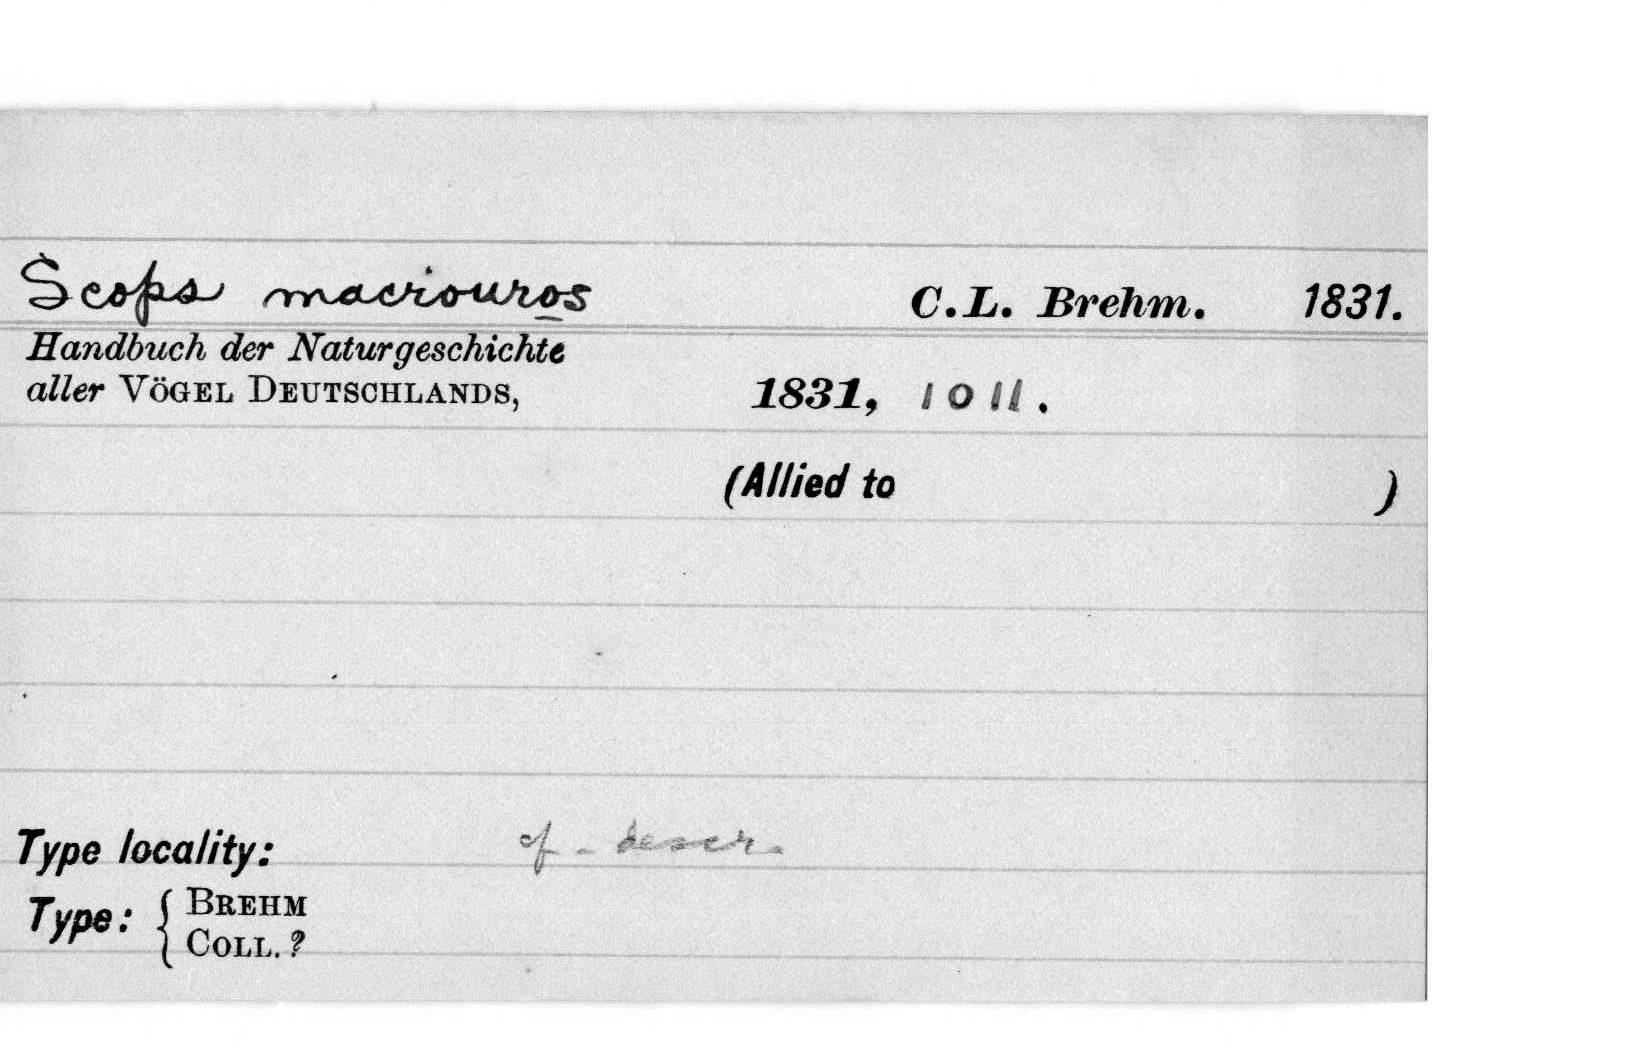 Scops macrouros C.L. Brehm. 1831.
Handbuch der Naturgeschichte
aller VÖGEL DEUTSCHLANDS, 1831, 1011.
(Allied to )
Type locality: cf. descr.
Type: { BREHM
COLL. ?